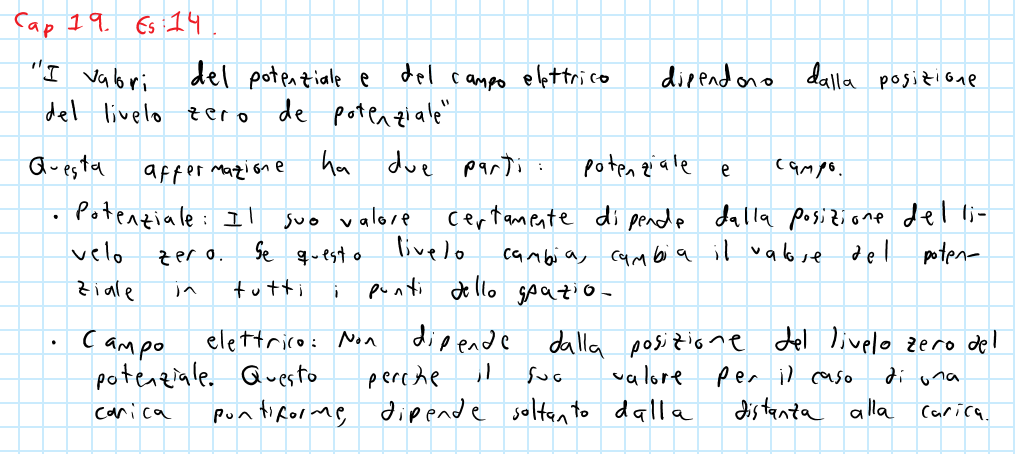 Cap 19. Es:14.
"I valori del potenziale e del campo elettrico dipendono dalla posizione
del livelo zero de potenziale"
Questa affermazione ha due parti: potenziale e campo.
• Potenziale: Il suo valore certamente dipende dalla posizione del li-
velo zero. Se questo livelo cambia, cambia il valore del poten-
ziale in tutti i punti dello spazio-
• Campo elettrico: Non dipende dalla posizione del livelo zero del
potenziale. Questo perche il suo valore per il caso di una
carica puntiforme, dipende soltanto dalla distanza alla carica.